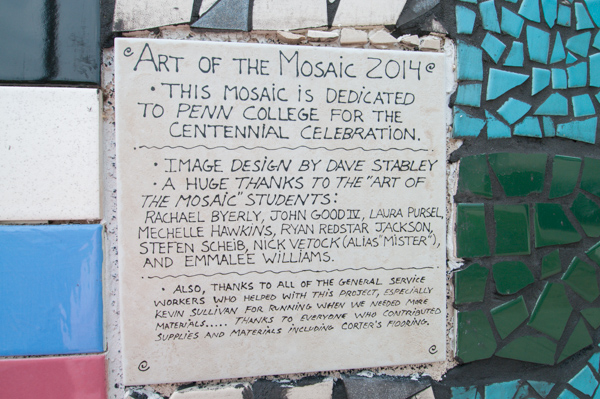 ART OF THE MOSAIC 2014
• THIS MOSAIC IS DEDICATED
TO PENN COLLEGE FOR THE
CENTENNIAL CELEBRATION.
• IMAGE DESIGN BY DAVE STABLEY
• A HUGE THANKS TO THE "ART OF
THE MOSAIC" STUDENTS:
RACHAEL BYERLY, JOHN GOOD IV, LAURA PURSEL,
MECHELLE HAWKINS, RYAN REDSTAR JACKSON,
STEFEN SCHEIB, NICK VETOCK (ALIAS "MISTER"),
AND EMMALEE WILLIAMS.
• ALSO, THANKS TO ALL OF THE GENERAL SERVICE
WORKERS WHO HELPED WITH THIS PROJECT, ESPECIALLY
KEVIN SULLIVAN FOR RUNNING WHEN WE NEEDED MORE
MATERIALS..... THANKS TO EVERYONE WHO CONTRIBUTED
SUPPLIES AND MATERIALS INCLUDING CORTER'S FLOORING.